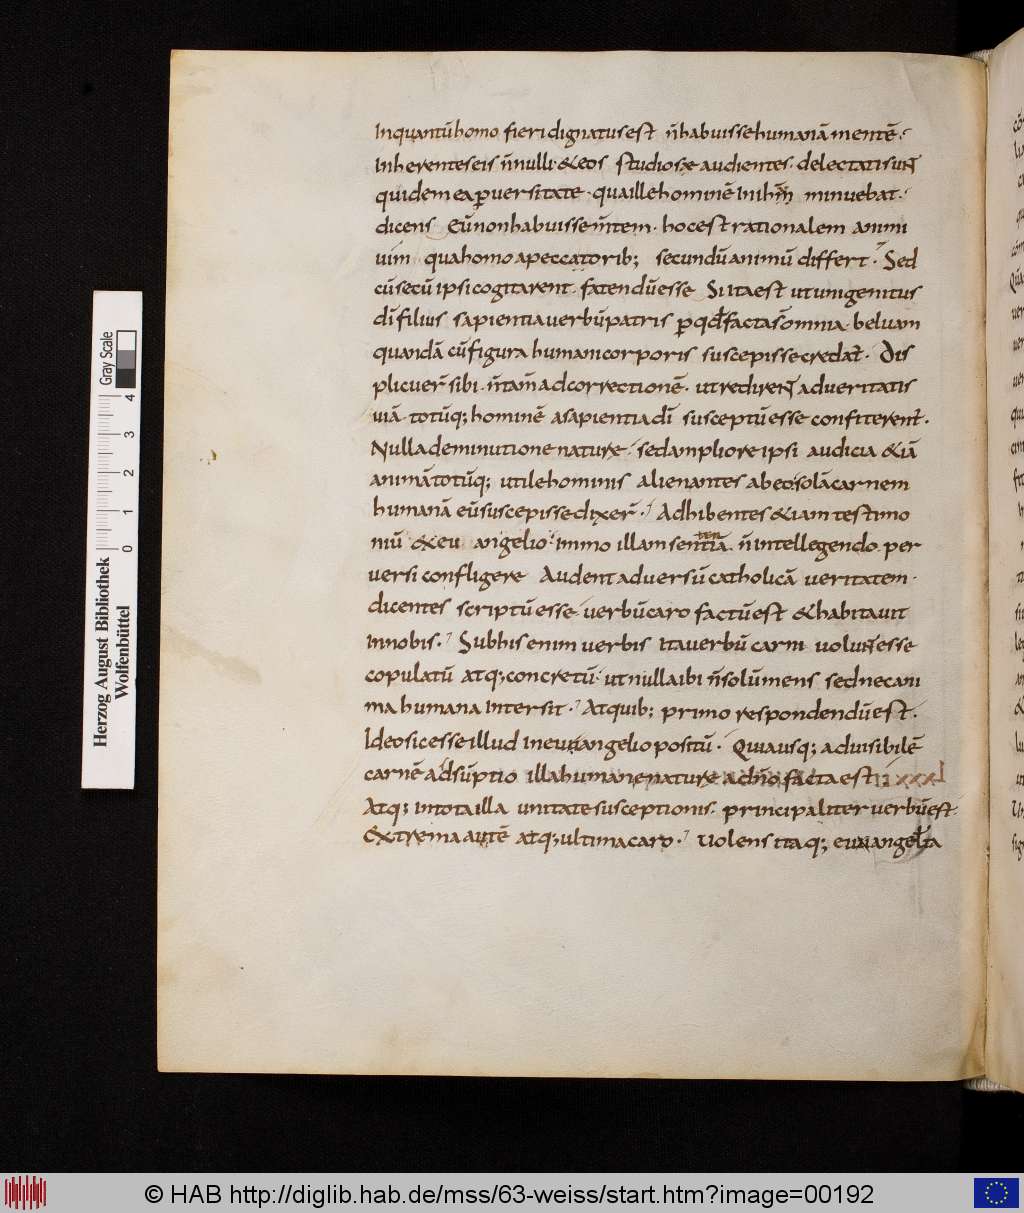 Inquantū homo fieri dignatus est n̄ habuisse humanā mentē.
Inherentes eis n̄nulli. & eos studiosȩ audientes. delectati sun̄
quidem ea ꝑuersitate. qua ille hominē in ihm̄ minuebat.
dicens. Eū non habuisse m̄tem. hoc est rationalem animi
uim qua homo a peccatorib; secundū animū differt. Sed
cū secū ipsi cogitarent. fatendū esse Si ita est ut unigenitus
dī filius sapientia uerbū patris ꝑ qd̄ facta s̄ omnia. beluam
quandā cū figura humani corporis suscepisse credat̄. Dis
plicuer̄ sibi. n̄ tam̄ ad correctionē. ut rediren̄ ad ueritatis
uiā totūq; hominē a sapientia dī susceptū esse confiterent̄.
Nulla deminutione naturȩ. sed ampliore ipsi audicia & iā
animā totūq; utile hominis alienantes ab eo; solā carnem
humanā eū suscepisse dixer̄. Adhibentes & iam testimo
niū & eu angelio. immo illam sentiā n̄ intellegendo per
uersi confligere Audent aduersū catholicā ueritatem.
dicentes scriptū esse. uerbū caro factū est & habitauit
in nobis. Sub his enim uerbis Ita uerbū carni uolun̄ esse
copulatū atq; concretū. ut nulla ibi n̄ solū mens sed nec ani
ma humana intersit. Atquib; primo respondendū est.
Ideo sic esse illud in euuangelio positū. Quia usq; ad uisibilē
carnē adsūptio illa humanȩ naturȩ a dn̄o facta est
Atq; in tota illa unitate susceptionis. principaliter uerbū est
Extrema autē atq; ultima caro. Uolens itaq; euuangelista
Herzog August Bibliothek
Wolfenbüttel
0 1 2 3 4
Gray Scale
© HAB http://diglib.hab.de/mss/63-weiss/start.htm?image=00192